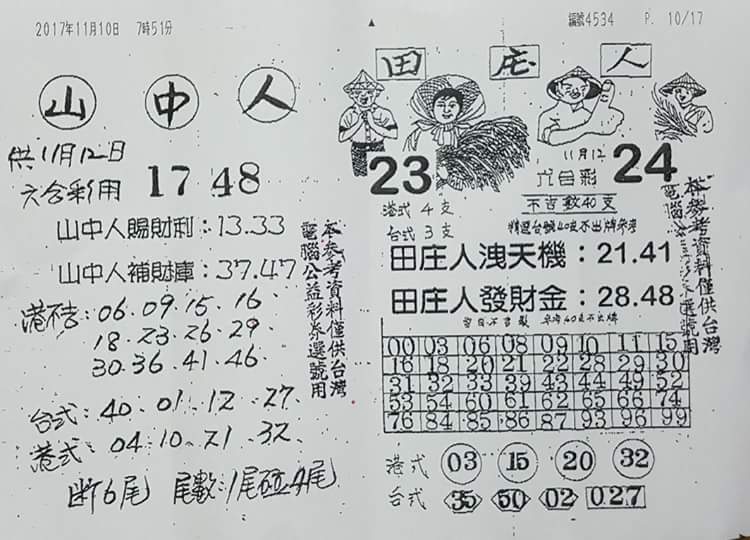 2017年11月10日 7時51分
編號4534 P. 10/17
山中人
供11月12日
六合彩用
17 48
山中人賜財利：13.33
山中人補財庫：37.47
港不吉：06.09.15.16
18.23.26.29
30.36.41.46
台式：40.01.12.27
港式：04.10.21.32
断6尾 尾數：1尾碰4尾
本參考資料僅供台灣
電腦公益彩券選號用
田庄人
23
11月12
六合彩
24
港式 4支
台式 3支
不吉數40支
精選台號40支不出牌參考
田庄人洩天機：21.41
田庄人發財金：28.48
當日不吉數 參考40支不出牌
00 03 06 08 09 10 11 15
16 18 20 21 22 28 29 30
31 32 33 39 43 44 49 52
53 54 60 61 62 65 66 74
76 84 85 86 87 93 96 99
港式 03 15 20 32
台式 35 50 02 027
本參考資料僅供台灣
電腦公益彩券選號用